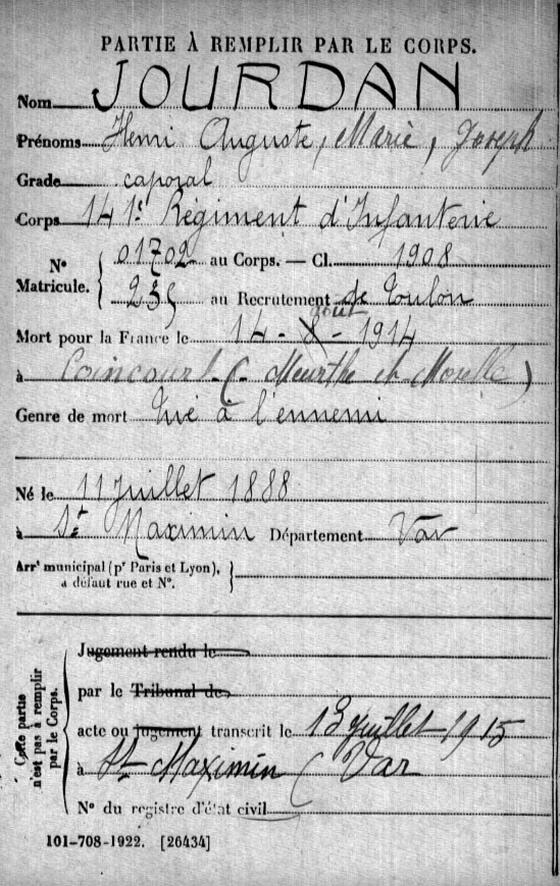 PARTIE À REMPLIR PAR LE CORPS.
Nom JOURDAN
Prénoms Henri Auguste, Marie, Joseph
Grade caporal
Corps 141e Régiment d'Infanterie
N° Matricule. { 01702 au Corps. — Cl. 1908
235 au Recrutement de Toulon
août
Mort pour la France le 14 - 8 - 1914
à Coincourt (Meurthe et Moselle)
Genre de mort tué à l'ennemi
Né le 11 Juillet 1888
à St Maximin Département Var
Arrt municipal (pr Paris et Lyon),
à défaut rue et N°.
Cette partie n'est pas à remplir par le Corps.
Jugement rendu le
par le Tribunal de
acte ou jugement transcrit le 13 juillet 1915
à St Maximin (Var
N° du registre d'état civil
101-708-1922. [26434]